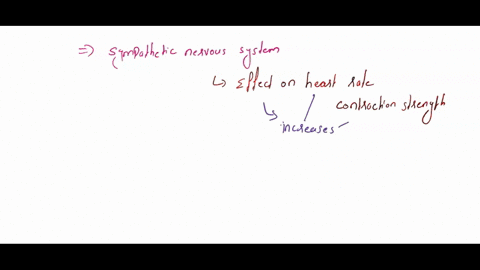 ⇒ sympathetic nervous system
↳ Effect on heart rate
contraction strength
↳ increases